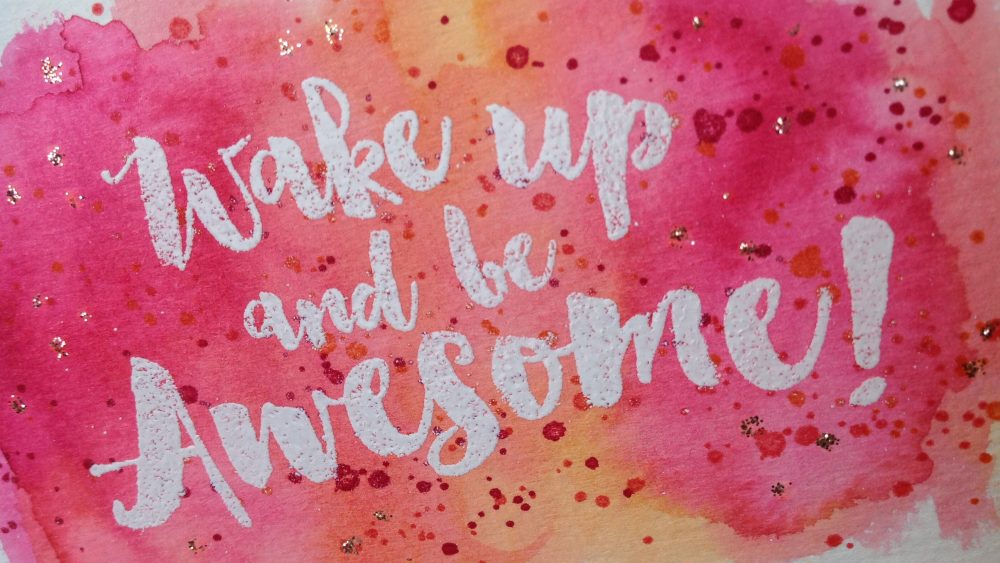 Wake up
and be
Awesome!